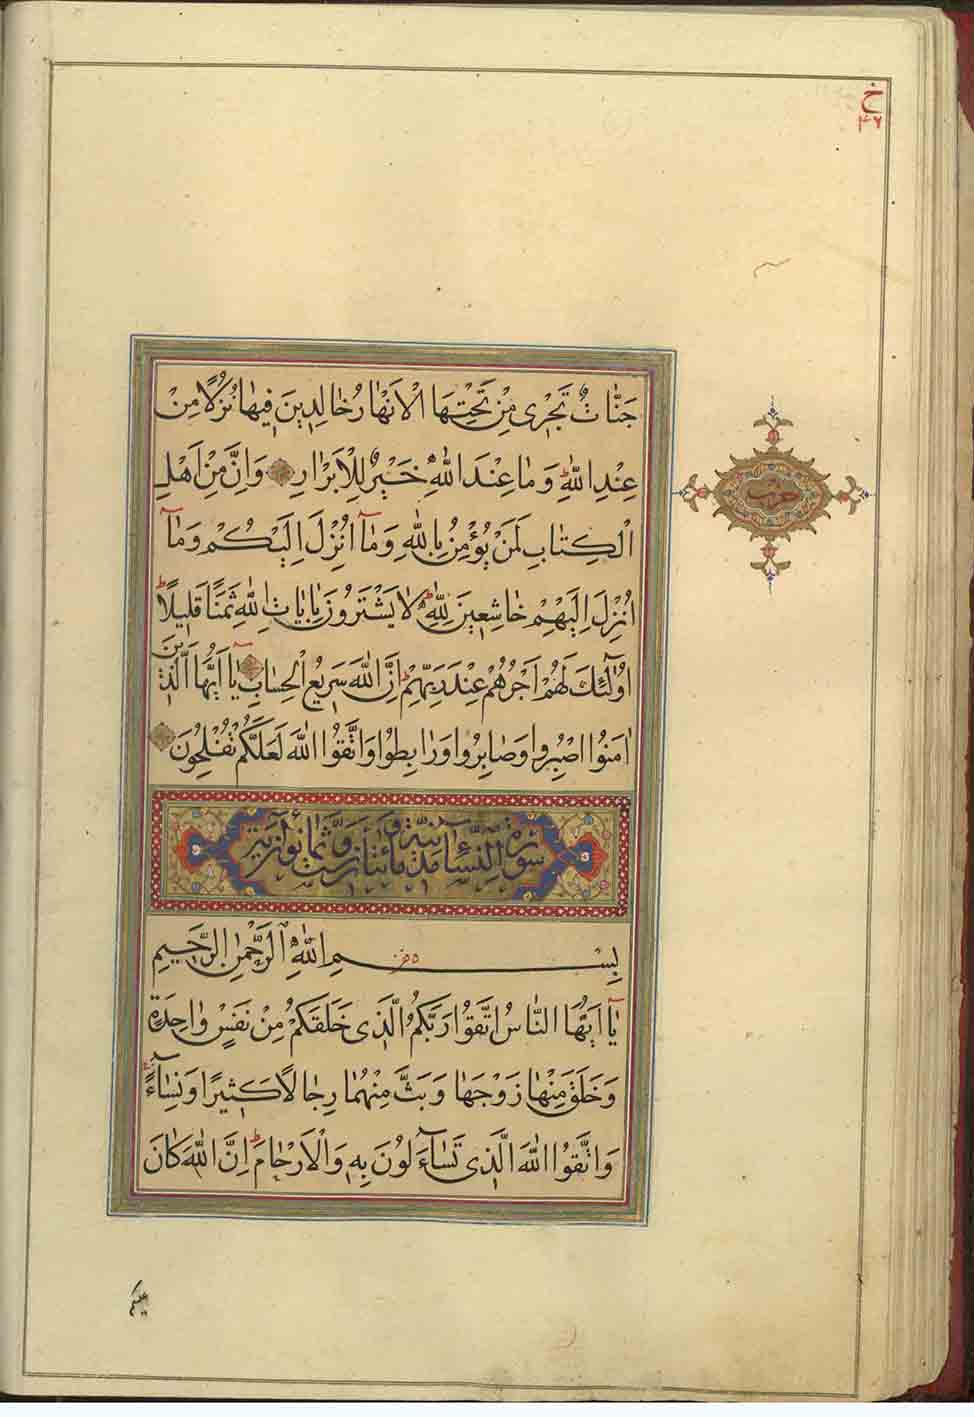 خ
۴۶
جَنَّاتٌ تَجْرِي مِنْ تَحْتِهَا الْأَنْهَارُ خَالِدِينَ فِيهَا نُزُلًا مِنْ
عِنْدِ اللَّهِ وَمَا عِنْدَ اللَّهِ خَيْرٌ لِلْأَبْرَارِ وَإِنَّ مِنْ أَهْلِ
حزب
الْكِتَابِ لَمَنْ يُؤْمِنُ بِاللَّهِ وَمَآ أُنْزِلَ إِلَيْكُمْ وَمَآ
أُنْزِلَ إِلَيْهِمْ خَاشِعِينَ لِلَّهِ لَا يَشْتَرُونَ بِآيَاتِ اللَّهِ ثَمَنًا قَلِيلًا
أُولَٰئِكَ لَهُمْ أَجْرُهُمْ عِنْدَ رَبِّهِمْ إِنَّ اللَّهَ سَرِيعُ الْحِسَابِ يَآ أَيُّهَا الَّذِينَ
اٰمَنُوا اصْبِرُوا وَصَابِرُوا وَرَابِطُوا وَاتَّقُوا اللَّهَ لَعَلَّكُمْ تُفْلِحُونَ
سورة النسآء مدنية وهي مائتان وثمانون آية
بِسْمِ اللَّهِ الرَّحْمٰنِ الرَّحِيمِ
يَآ أَيُّهَا النَّاسُ اتَّقُوا رَبَّكُمُ الَّذِي خَلَقَكُمْ مِنْ نَفْسٍ وَاحِدَةٍ
وَخَلَقَ مِنْهَا زَوْجَهَا وَبَثَّ مِنْهُمَا رِجَالًا كَثِيرًا وَنِسَآءً
وَاتَّقُوا اللَّهَ الَّذِي تَسَآءَلُونَ بِهِ وَالْأَرْحَامَ إِنَّ اللَّهَ كَانَ
عليكم